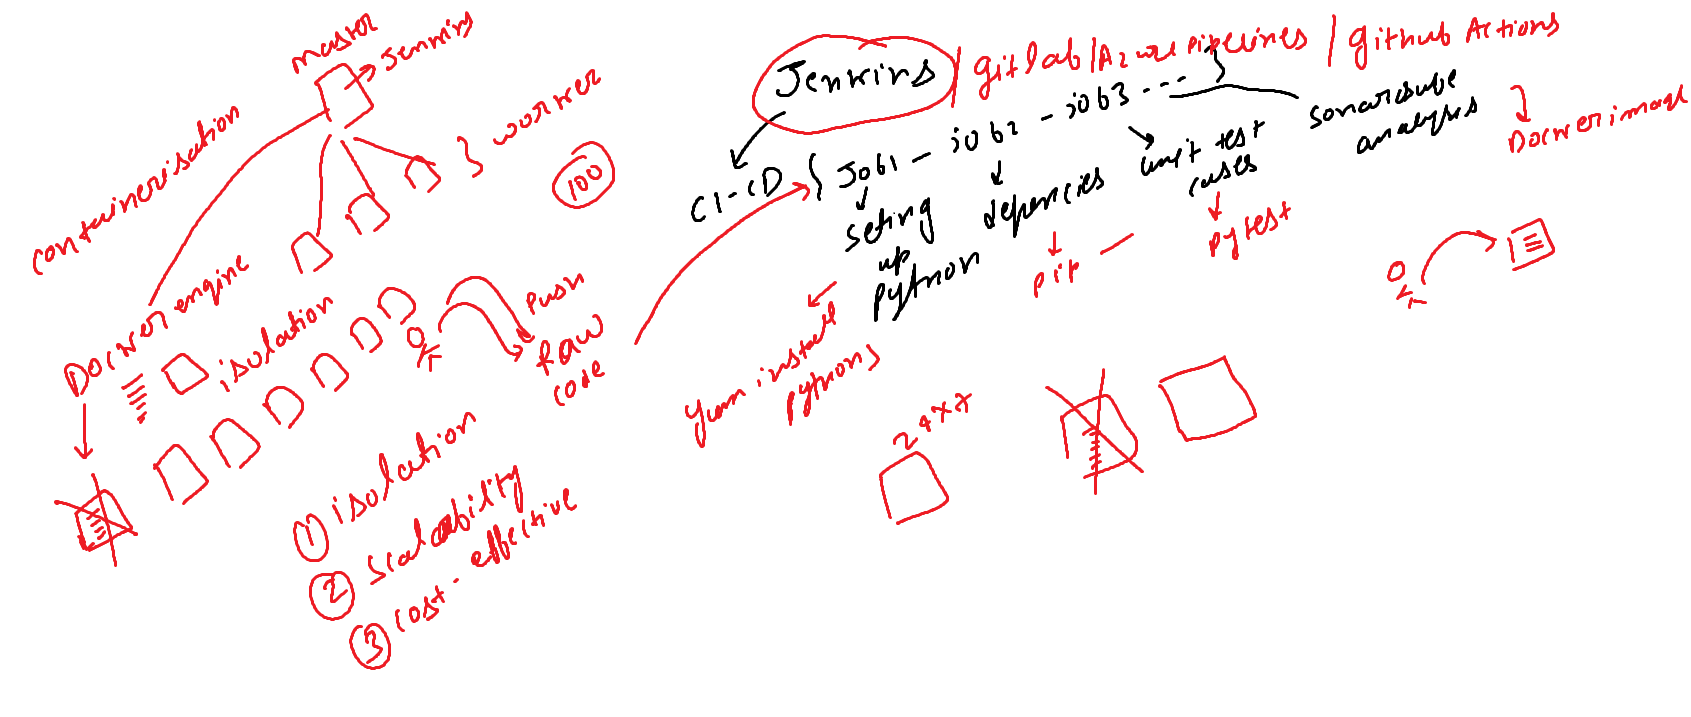 master
Jenkins
containerisation
} worker
100
Docker engine
isolation
Push
Raw
code
① isolation
② scalability
③ cost-effective
Jenkins / gitlab / Azure Pipelines / github Actions
CI-CD
{ Job1 - job2 - job3 ---
seting
up
python
depencies
unit test
cases
sonarcube
analysis
Docker image
yum install
python3
pip —
pytest
24x7